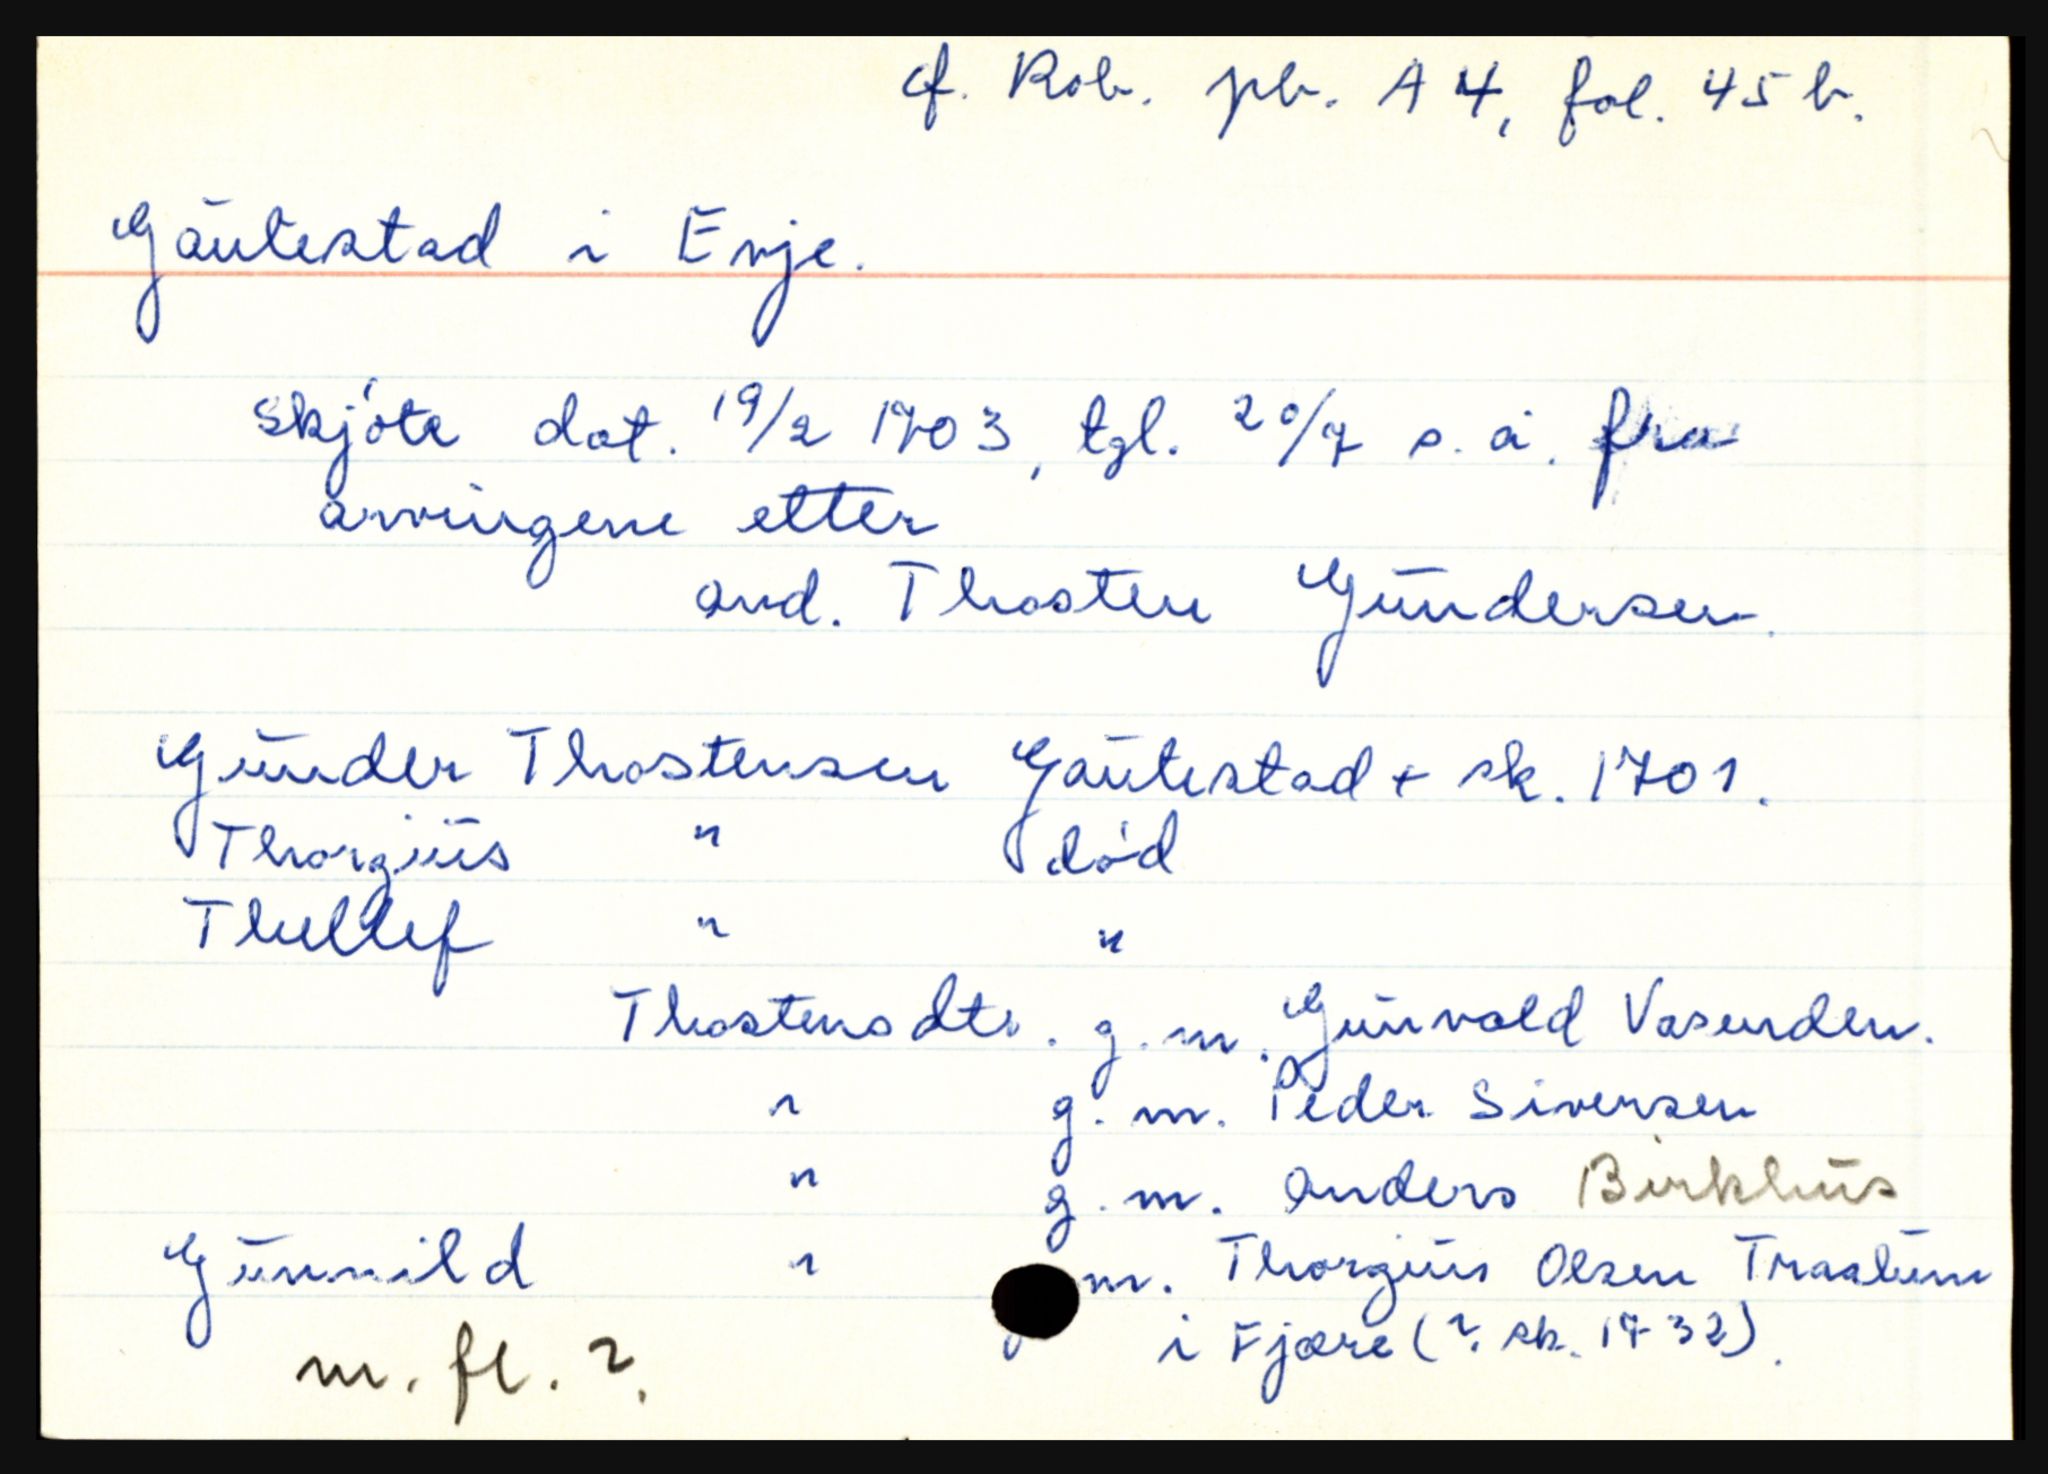 cf. Rob. pb. A 4, fol. 45 b.
Gautestad i Evje.
Skjøte dat. 19/2 1703, tgl. 20/7 s. å. fra
arvingene etter
avd. Thosten Gundersen.
Gunder Thostensen Gautestad + sk. 1701.
Thorgius " død
Thellef " "
Thostensdtr. g. m. Gunvald Vasenden.
" g. m. Peder Siversen
" g. m. Anders Birkhus
Gunnild " m. Thorgius Olsen Traalum
i Fjære (? sk. 1732).
m. fl. ?